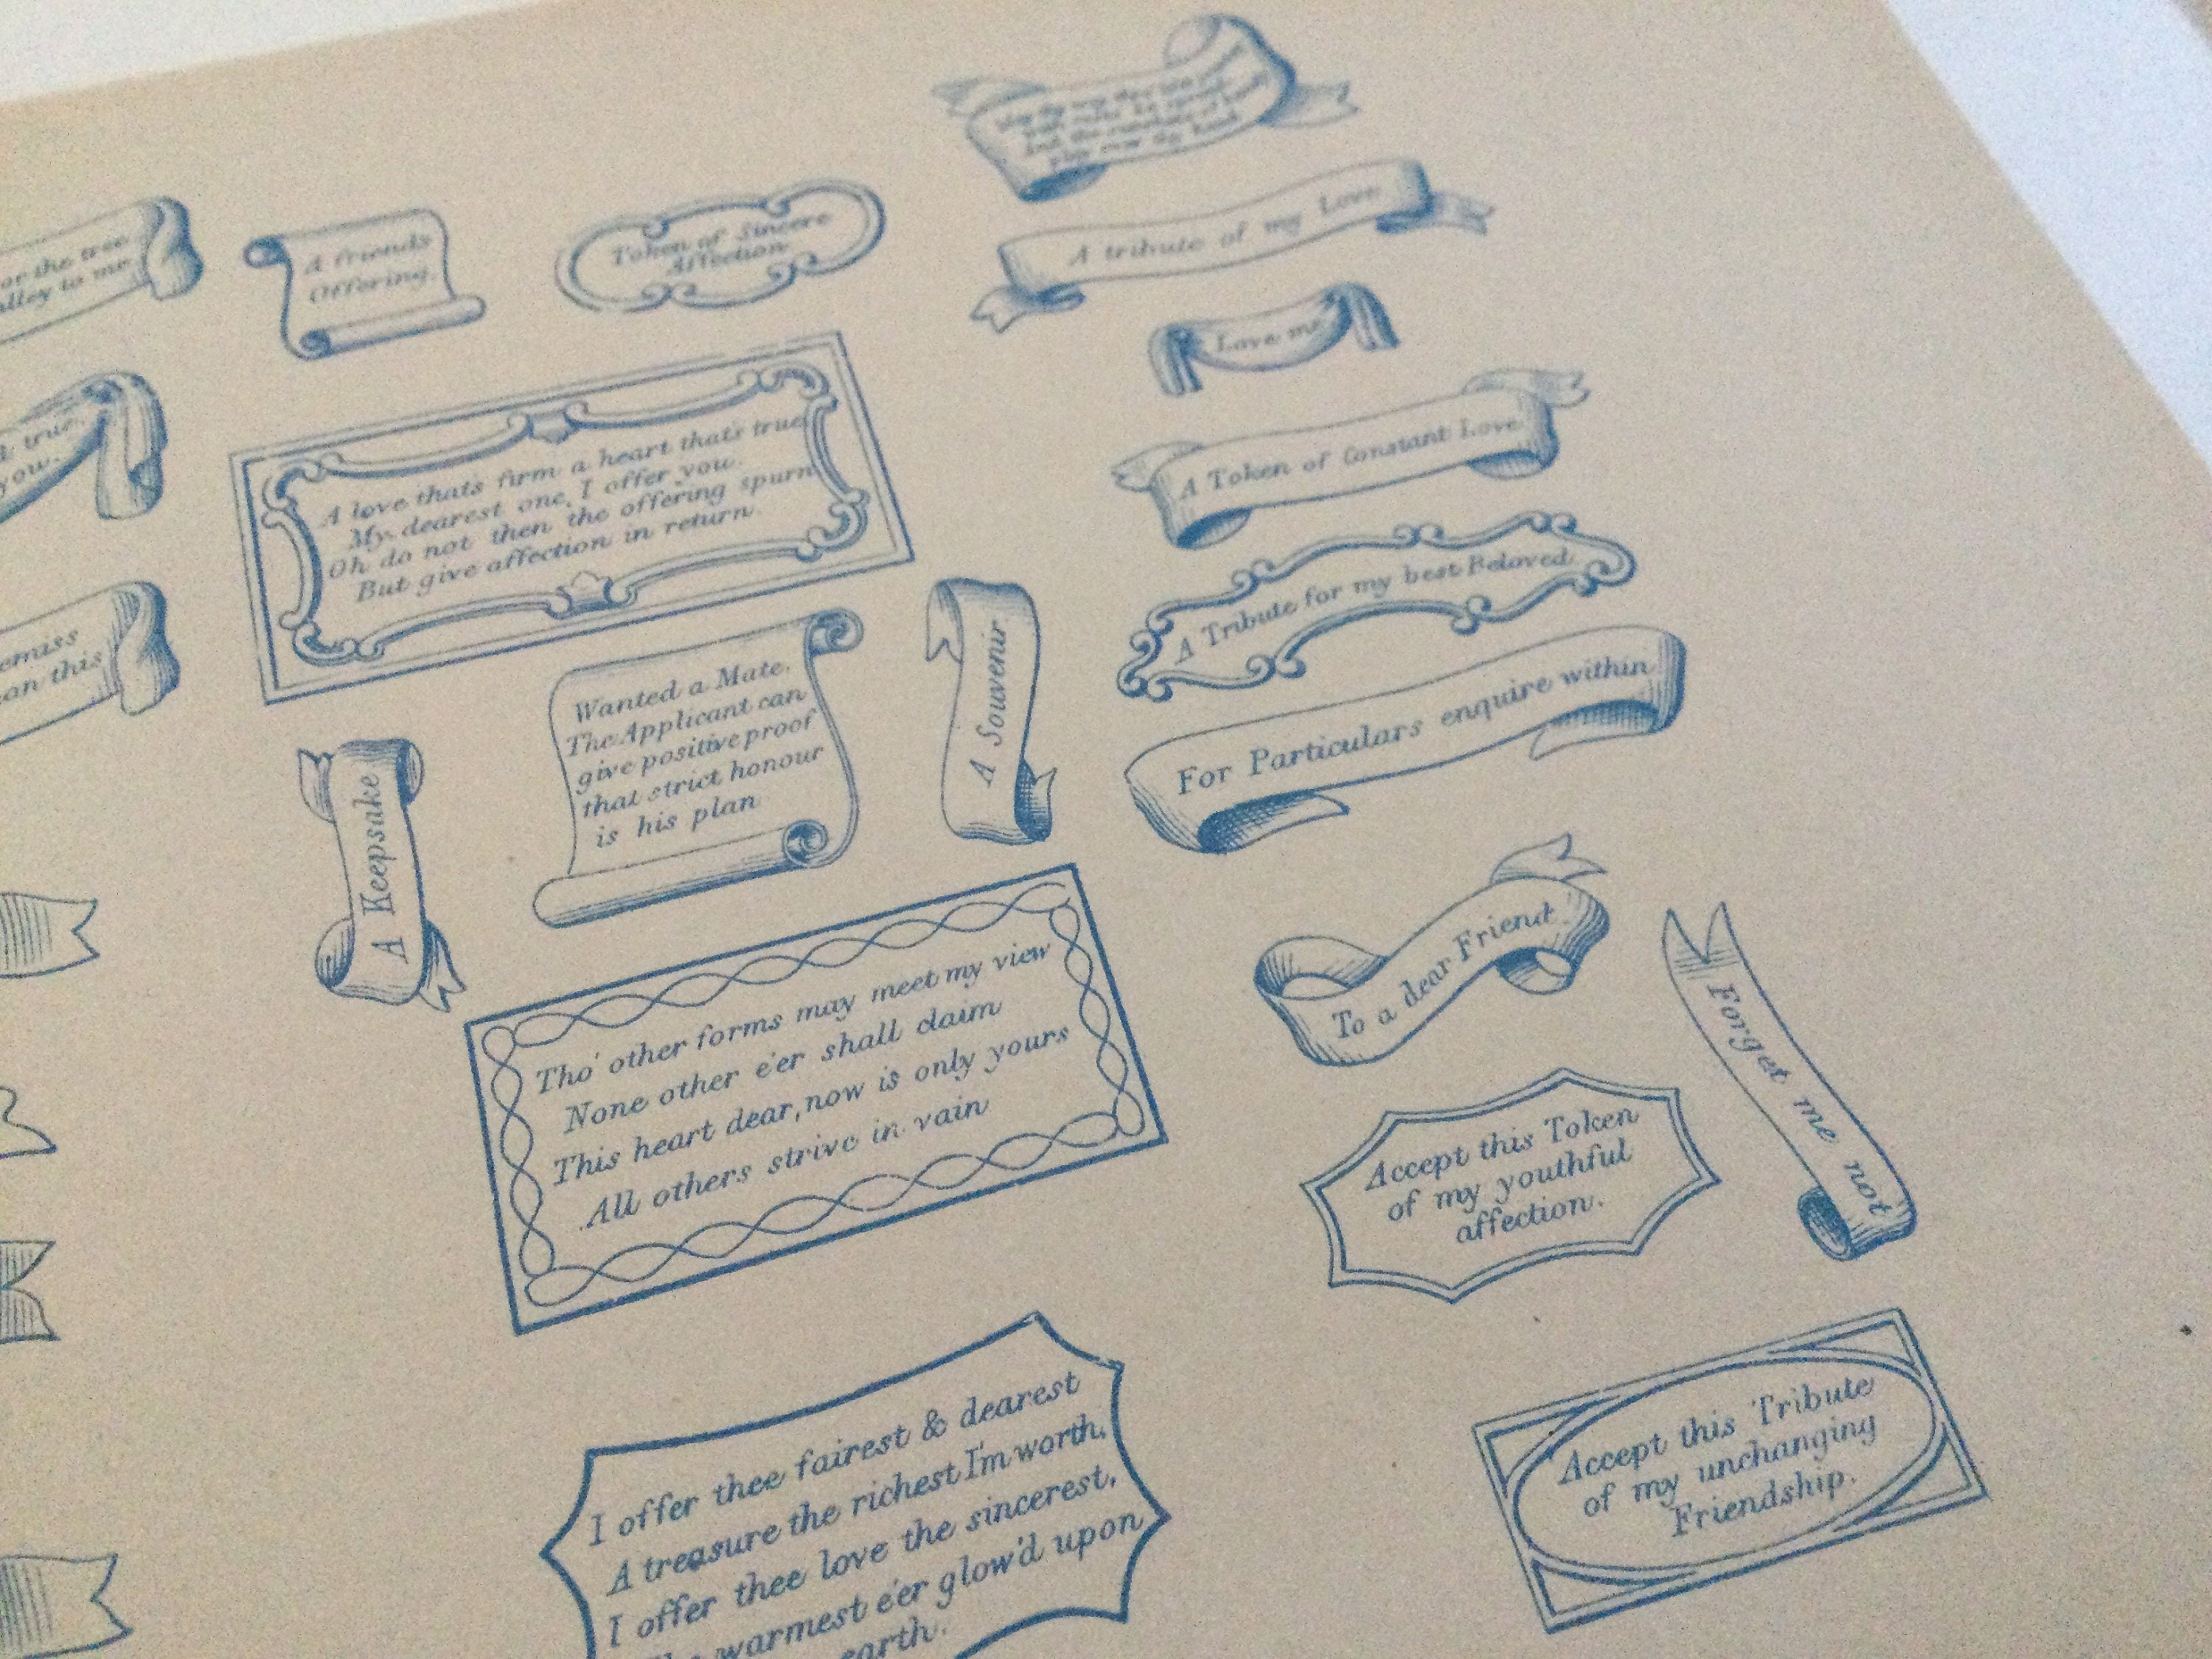 or the tree
alley to me
true,
you.
emiss
an this
A friends
Offering.
Token of Sincere
Affection
A tribute of my Love
Love me
A love that's firm a heart that's true
My dearest one, I offer you.
Oh do not then the offering spurn
But give affection in return.
A Token of Constant Love
A Tribute for my best Beloved.
For Particulars enquire within
Wanted a Mate.
The Applicant can
give positive proof
that strict honour
is his plan
A Souvenir
A Keepsake
Tho' other forms may meet my view
None other e'er shall claim
This heart dear, now is only yours
All others strive in vain
To a dear Friend
Forget me not
Accept this Token
of my youthful
affection.
I offer thee fairest & dearest
A treasure the richest I'm worth,
I offer thee love the sincerest,
warmest e'er glow'd upon
earth.
Accept this Tribute
of my unchanging
Friendship.